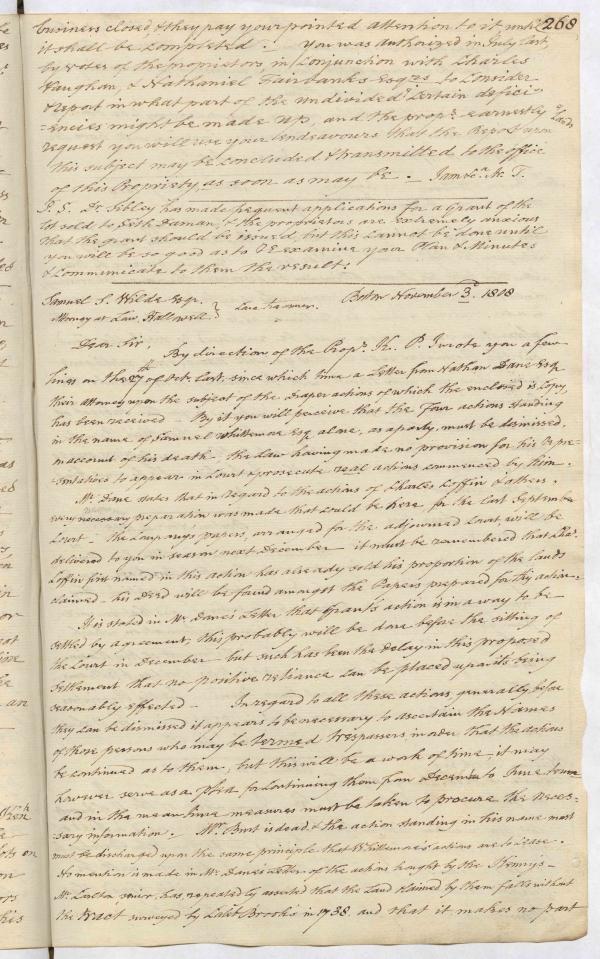 268
business closed, & they pay your pointed attention to it until
it shall be completed. — You was authorized in July last
by votes of the proprietors, in Conjunction with Charles
Vaughan, & Nathaniel Fairbanks Esqrs. to Consider
& report in what part of the undivided Certain defici-
=encies might be made up, and the propr. earnestly
request you will use your endeavours that the Report upon
this subject may be concluded & transmitted to the office
of this Propriety as soon as may be. I am &ca. &c T.
P. S. Dr. Sibley has made frequent applications for a Grant of the
lot sold to Seth Daman, & the proprietors are extremely anxious
that the grant should be issued, but this cannot be done until
you will be so good as to re examine your Plan & Minutes
& communicate to them the result:
Samuel S. Wilde Esqr. Boston November 3d. 1808
Attorney at Law, Hallowell
Dear Sir, By direction of the Propr. K. P. I wrote you a few
lines on the of Oct. last, since which time a Letter from Nathan Dane Esqr
their attorney upon the subject of the Draper actions of which the enclosed is Copy,
has been received By it you will perceive that the four actions standing
in the name of Samuel Whittemore Esqr alone, as a party, must be dismissed,
on account of his death — the Law having made no provision for his Repre-
=sentatives to appear in Court & prosecute real actions commenced by him.
Mr. Dane states that in regard to the actions of Charles Coffin & others,
every necessary preparation was made that could be here for the last September
Court — the Company's papers, arranged for the adjourned Court, will be
delivered to you in season next December it must be remembered that Chas.
Coffin first named in this action has already sold his proportion of the lands
claimed — his Deed will be found amongst the Papers prepared for this action —
It is stated in Mr. Dane's Letter that Grant's action is in a way to be
settled by agreement; this probably will be done before the sitting of
the Court in December but such has been the delay in this proposed
Settlement that no positive reliance can be placed upon its being
seasonably effected — In regard to all these actions generally, before
they can be dismissed it appears to be necessary to ascertain the Names
of those persons who may be termed trespassers in order that the actions
be continued as to them, but this will be a work of time — it may
however serve as a plea for continuing them from December to June term
and in the mean time measures must be taken to procure the neces-
sary information. Mr. Burt is dead & the action standing in his name must
must be discharged upon the same principle that Whittemore's actions are to cease.
No mention is made in Mr. Dane's Letter of the action bought by the
Mr. senior, has repeatedly asserted that the Land claimed by them falls without
the tract surveyed by Brooks in 1738 and that it makes no part